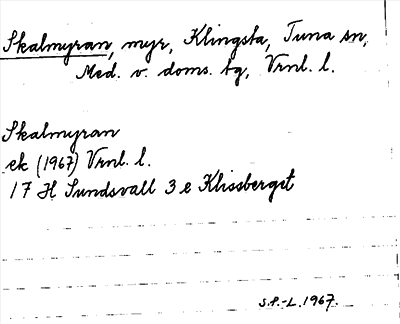 Skalmyran, myr, Klingsta, Tuna sn,
Med. v. doms. tg, Vrnl. l.
Skalmyran
ek (1967) Vrnl. l.
17 H Sundsvall 3 e Klissberget
S.P.-L. 1967.